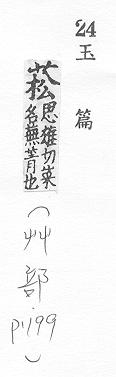 24
玉篇
菘思雄切菜
名蕪菁也
(艸部·P.199)